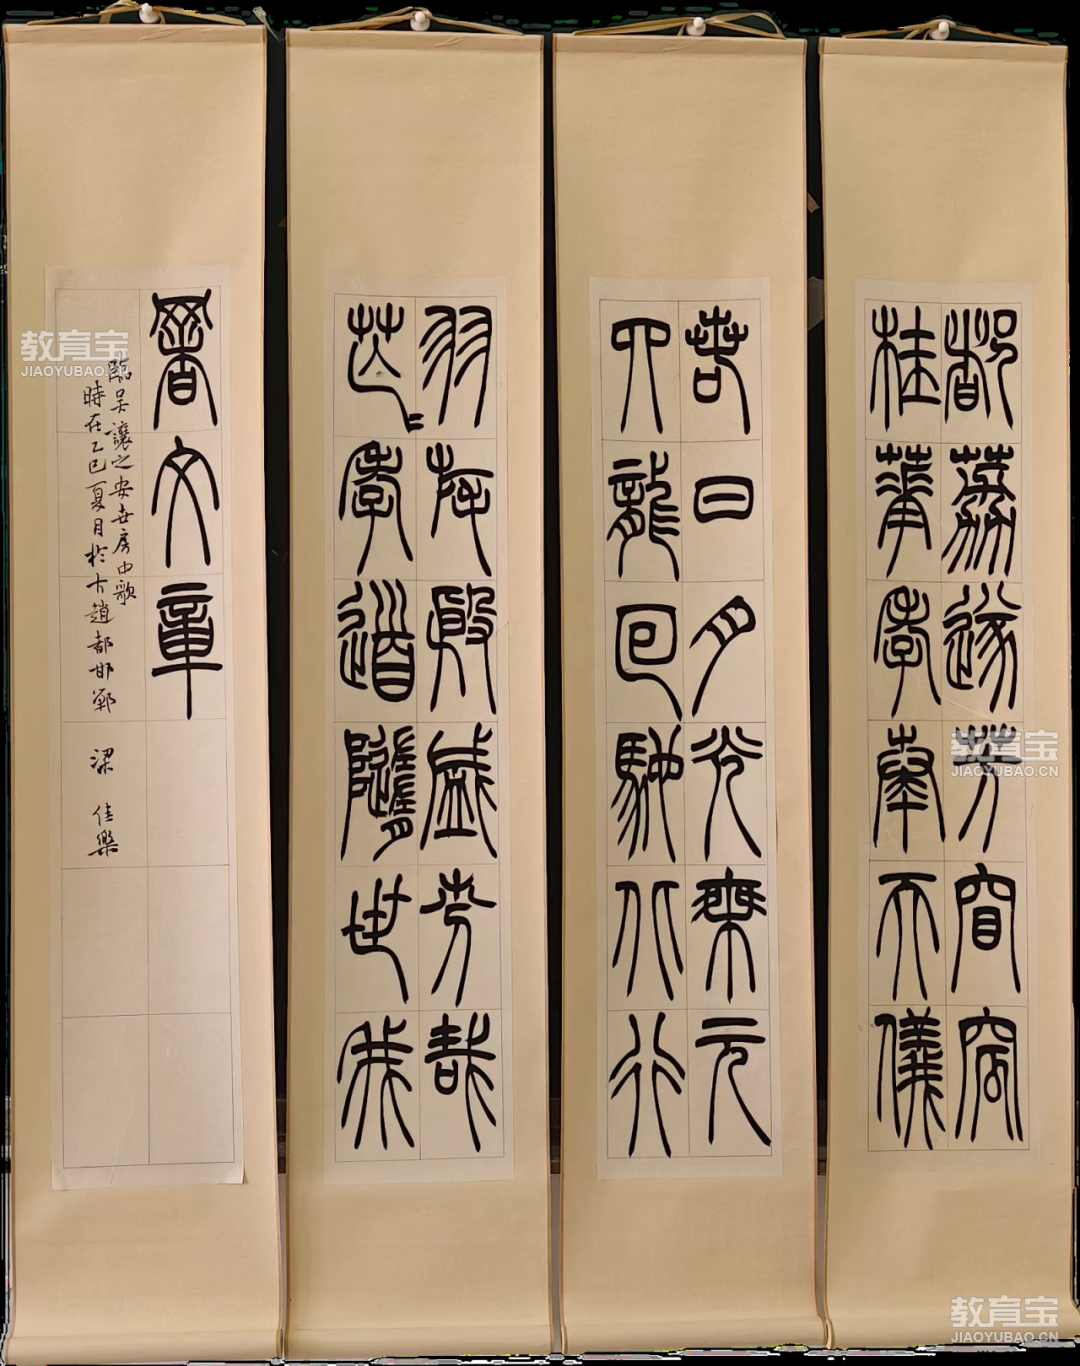 都荔遂芳窅窊
桂華孝奏天儀
若日月光乘元
四龍回馳北行
羽旄殷盛芬哉
芒〻孝道隨世我
署文章
臨吳讓之安世房中歌
時在乙巳夏月於古趙都邯鄲 梁佳樂
教育宝
JIAOYUBAO.CN
教育宝
JIAOYUBAO.CN
教育宝
JIAOYUBAO.CN